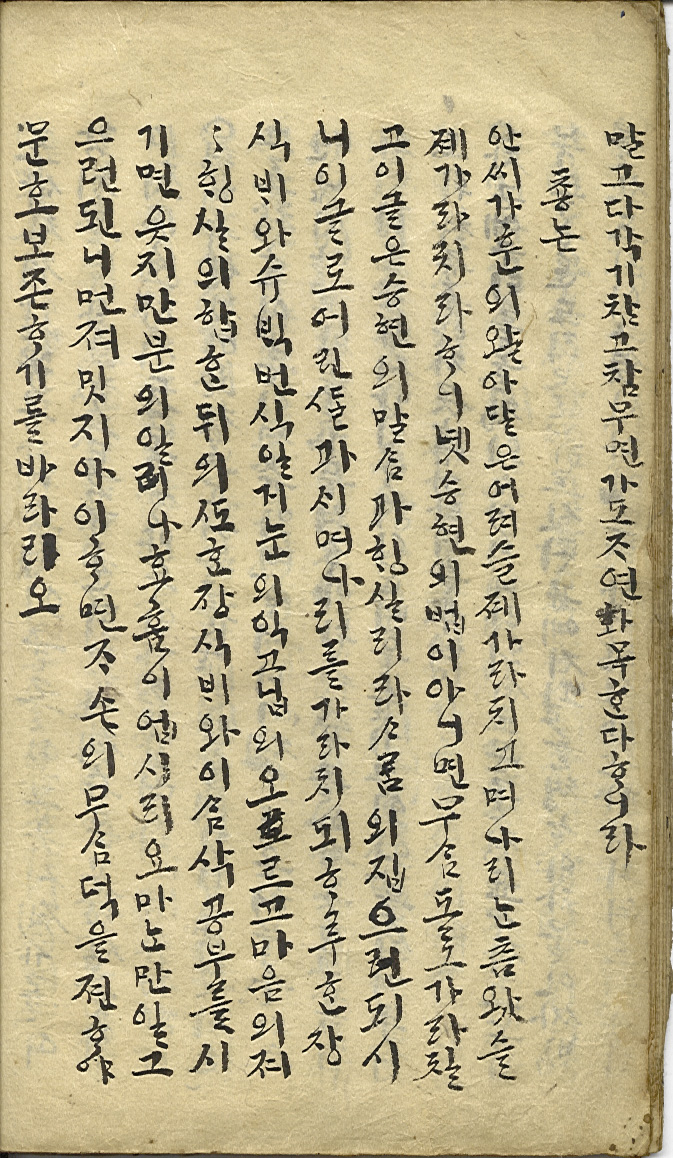 말고 다각기 찰고 참무연가도 ᄌᆞ연 화목ᄒᆞᆫ다 ᄒᆞ니라
죵논
안씨가훈의 왈 아달은 어려슬 졔 가라치고 며나리는 츰 왓슬
졔 가라치라 ᄒᆞ니 녯 승현의 법이 아니면 무ᄉᆞᆷ 도로 가라찰
고 이 글은 승현의 말ᄉᆞᆷ과 ᄒᆡᆼ실리라 ᄉᆞ롬의 집으련 되시
니 이 글로 어린 ᄯᅩᆯ과 ᄉᆡ 며나리를 가라치되 ᄒᆞ루 ᄒᆞᆫ 장
식 ᄇᆡ와 슈ᄇᆡᆨ번식 일거 눈의 익고 닙의 오르고 마음의 져
ᄒᆡᆼ실의 합ᄒᆞᆫ 뒤의 ᄯᅩ ᄒᆞᆫ 장식 ᄇᆡ와 이ᄉᆞᆷ삭 공부를 시
기면 웃지 만분의 일리나 효흠이 업시리요마는 만일 그
으련 된 니 먼져 밋지 아이ᄒᆞ면 ᄌᆞ손의 무ᄉᆞᆷ 덕을 젼ᄒᆞ야
문호 보죤ᄒᆞ기를 바라리오